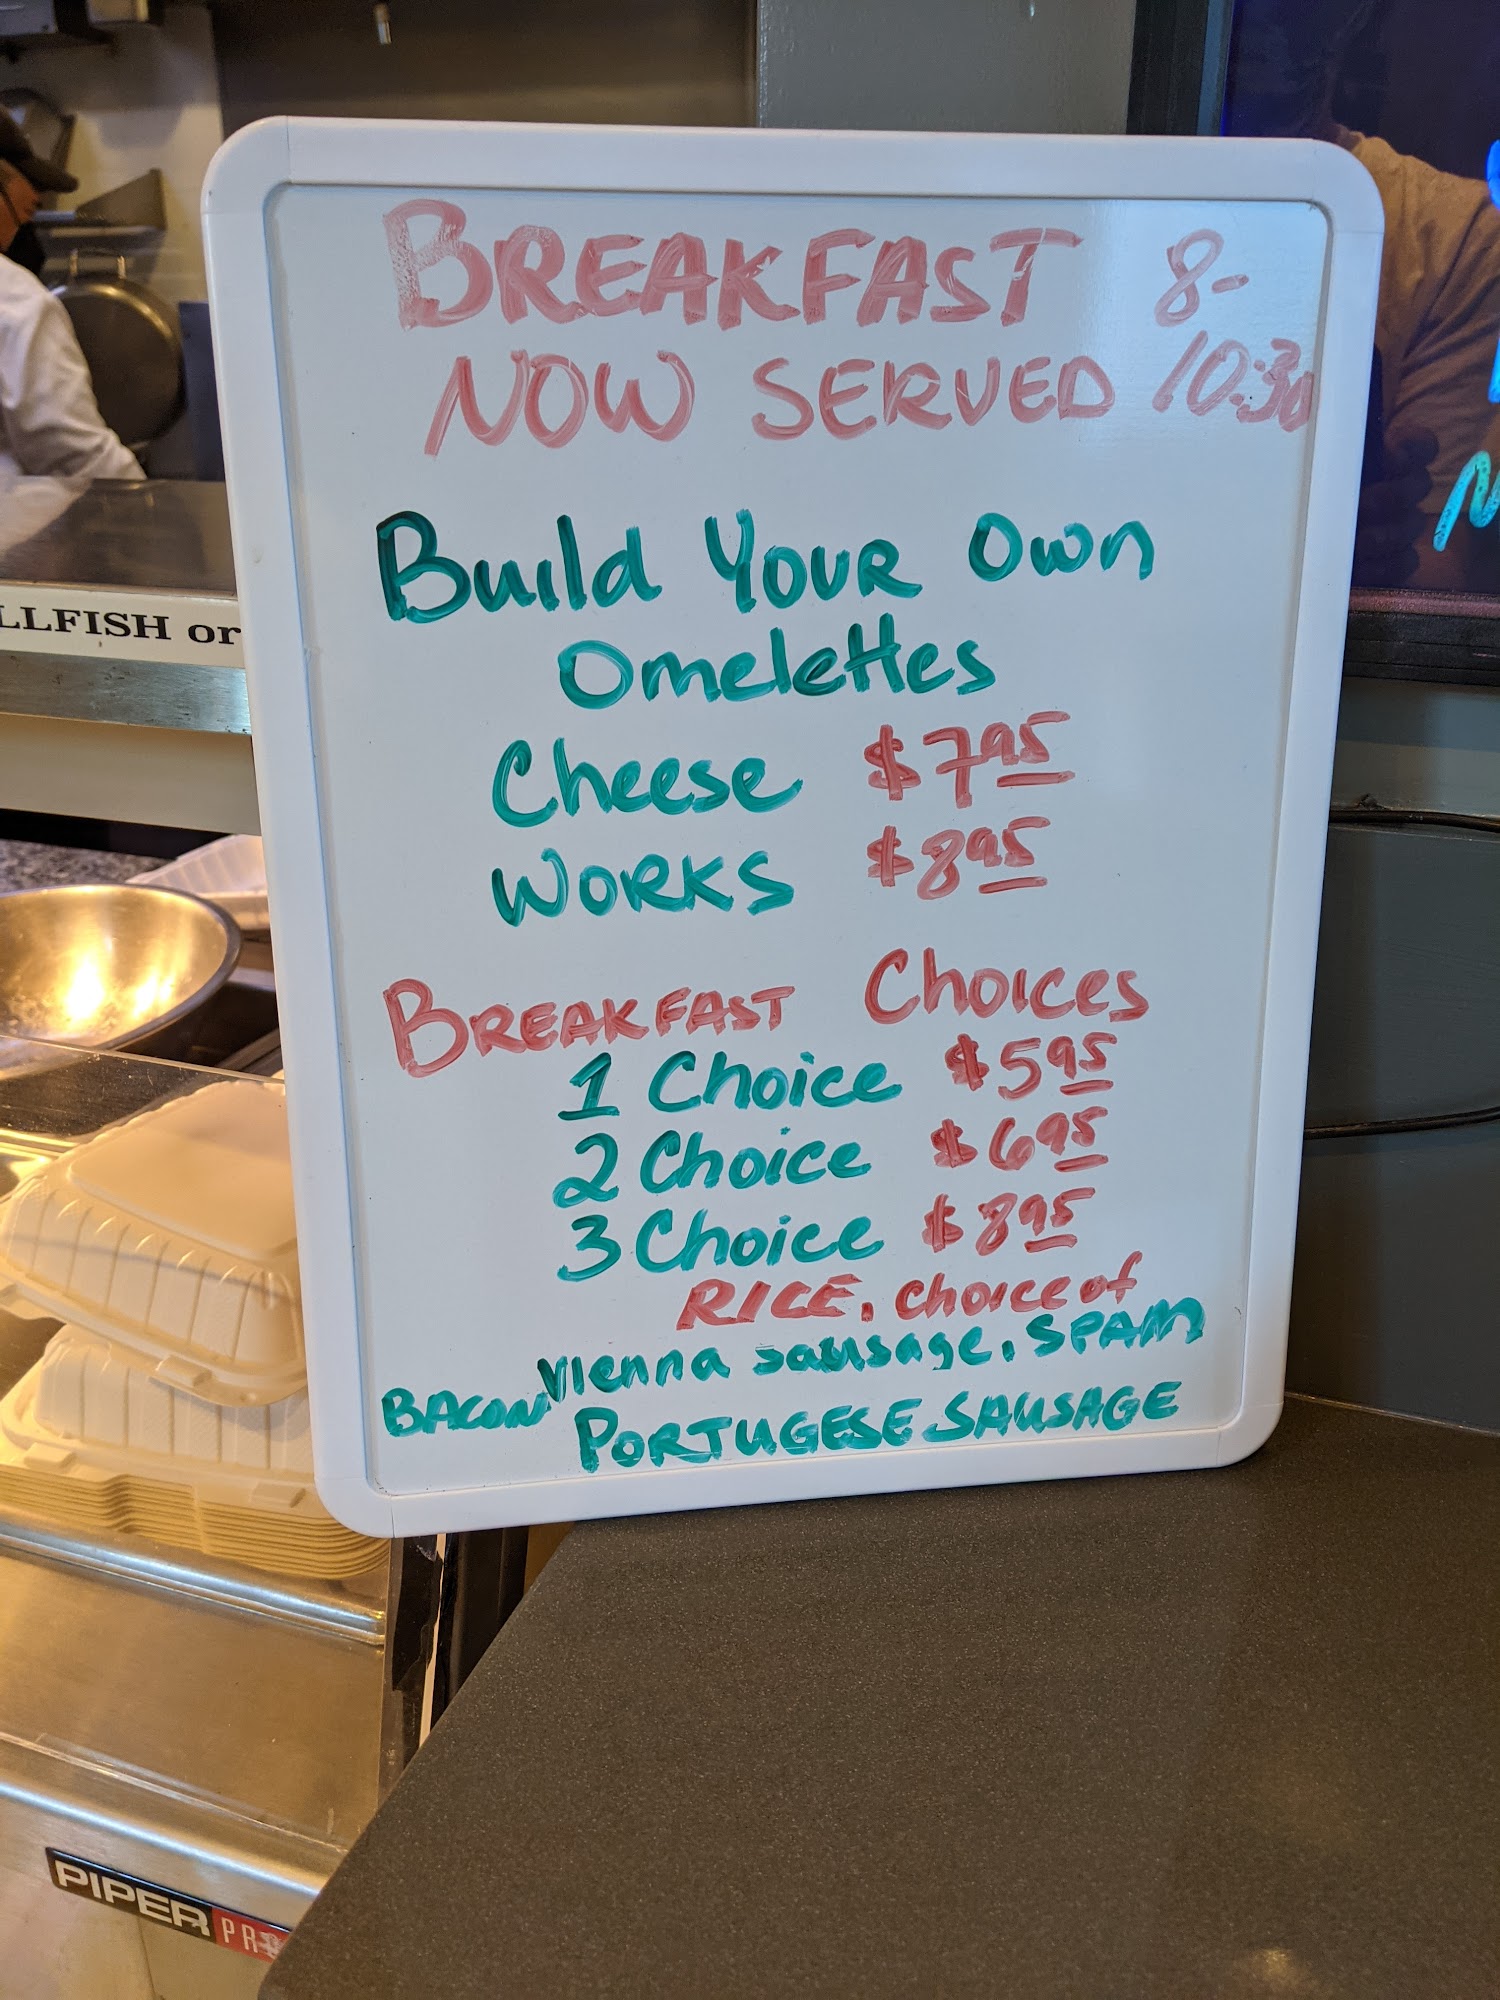 BREAKFAST 8-
NOW SERVED 10:30
Build YOUR Own
Omelettes
Cheese $7.95
WORKS $8.95
BREAKFAST Choices
1 Choice $5.95
2 Choice $6.95
3 Choice $8.95
RICE, choice of
Vienna sausage, SPAM
BACON PORTUGESE SAUSAGE
LLFISH or
PIPER